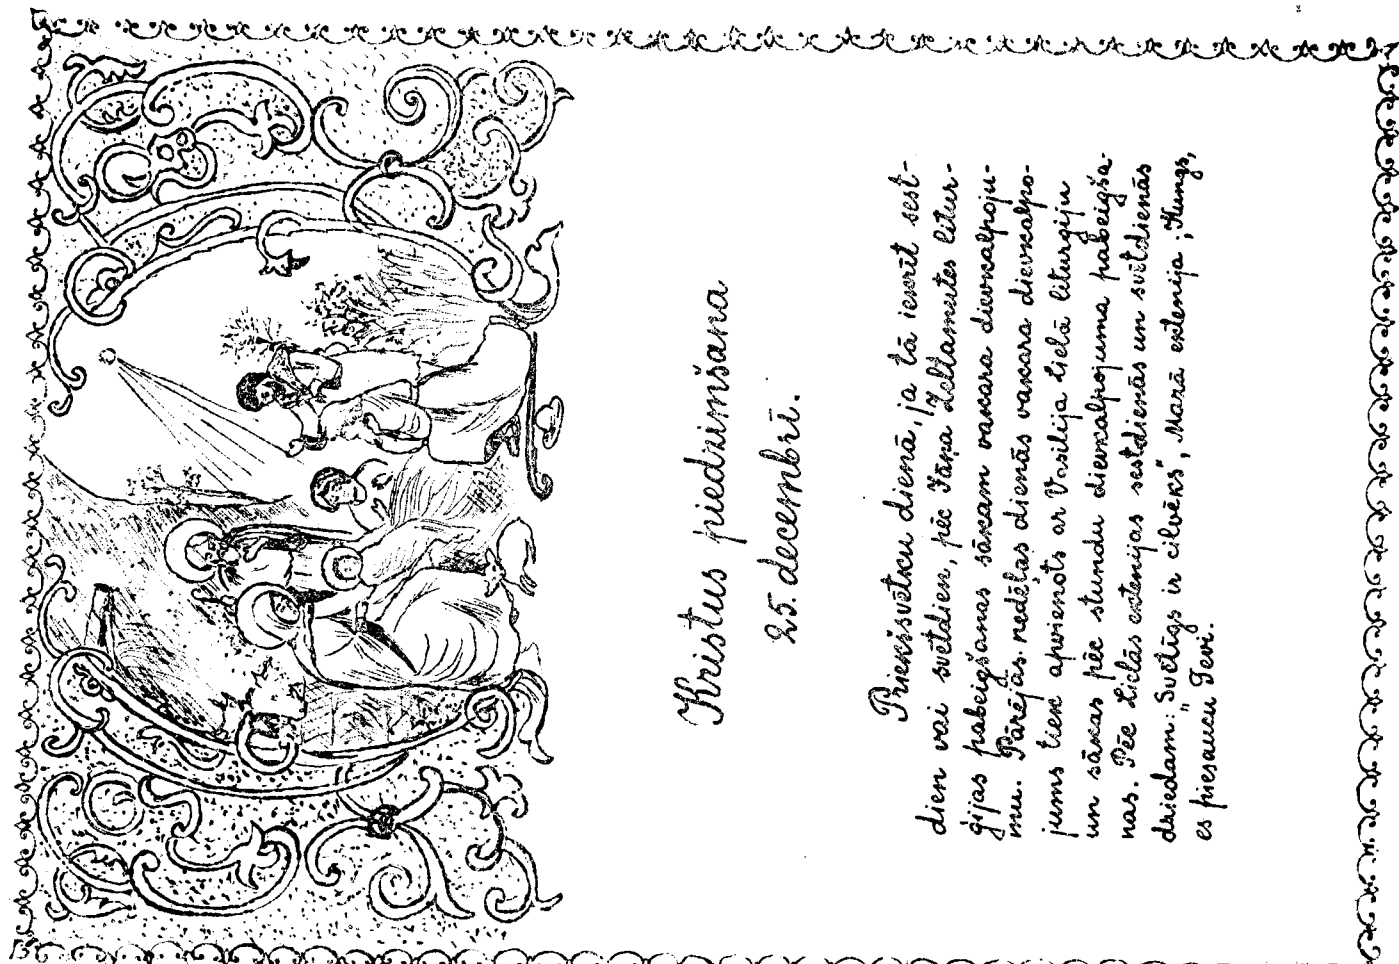 Kristus piedzimšana
25. decembrī.
Priekšsvētku dienā, ja tā iekrīt sest-
dien vai svētdien, pēc Jāņa Zeltamutes litur-
ģijas pabeigšanas sākam vakara dievkalpoju-
mu. Pārējās nedēļas dienās vakara dievkalpo-
jums tiek apvienots ar Vasīlija Lielā liturģiju
un sākas pēc stundu dievkalpojuma pabeigša-
nas. Pēc Lielās ektenijas sestdienās un svētdienās
dziedam: "Svētīgs ir cilvēks", Mazā ektenija; "Kungs,
es piesaucu Tevi.